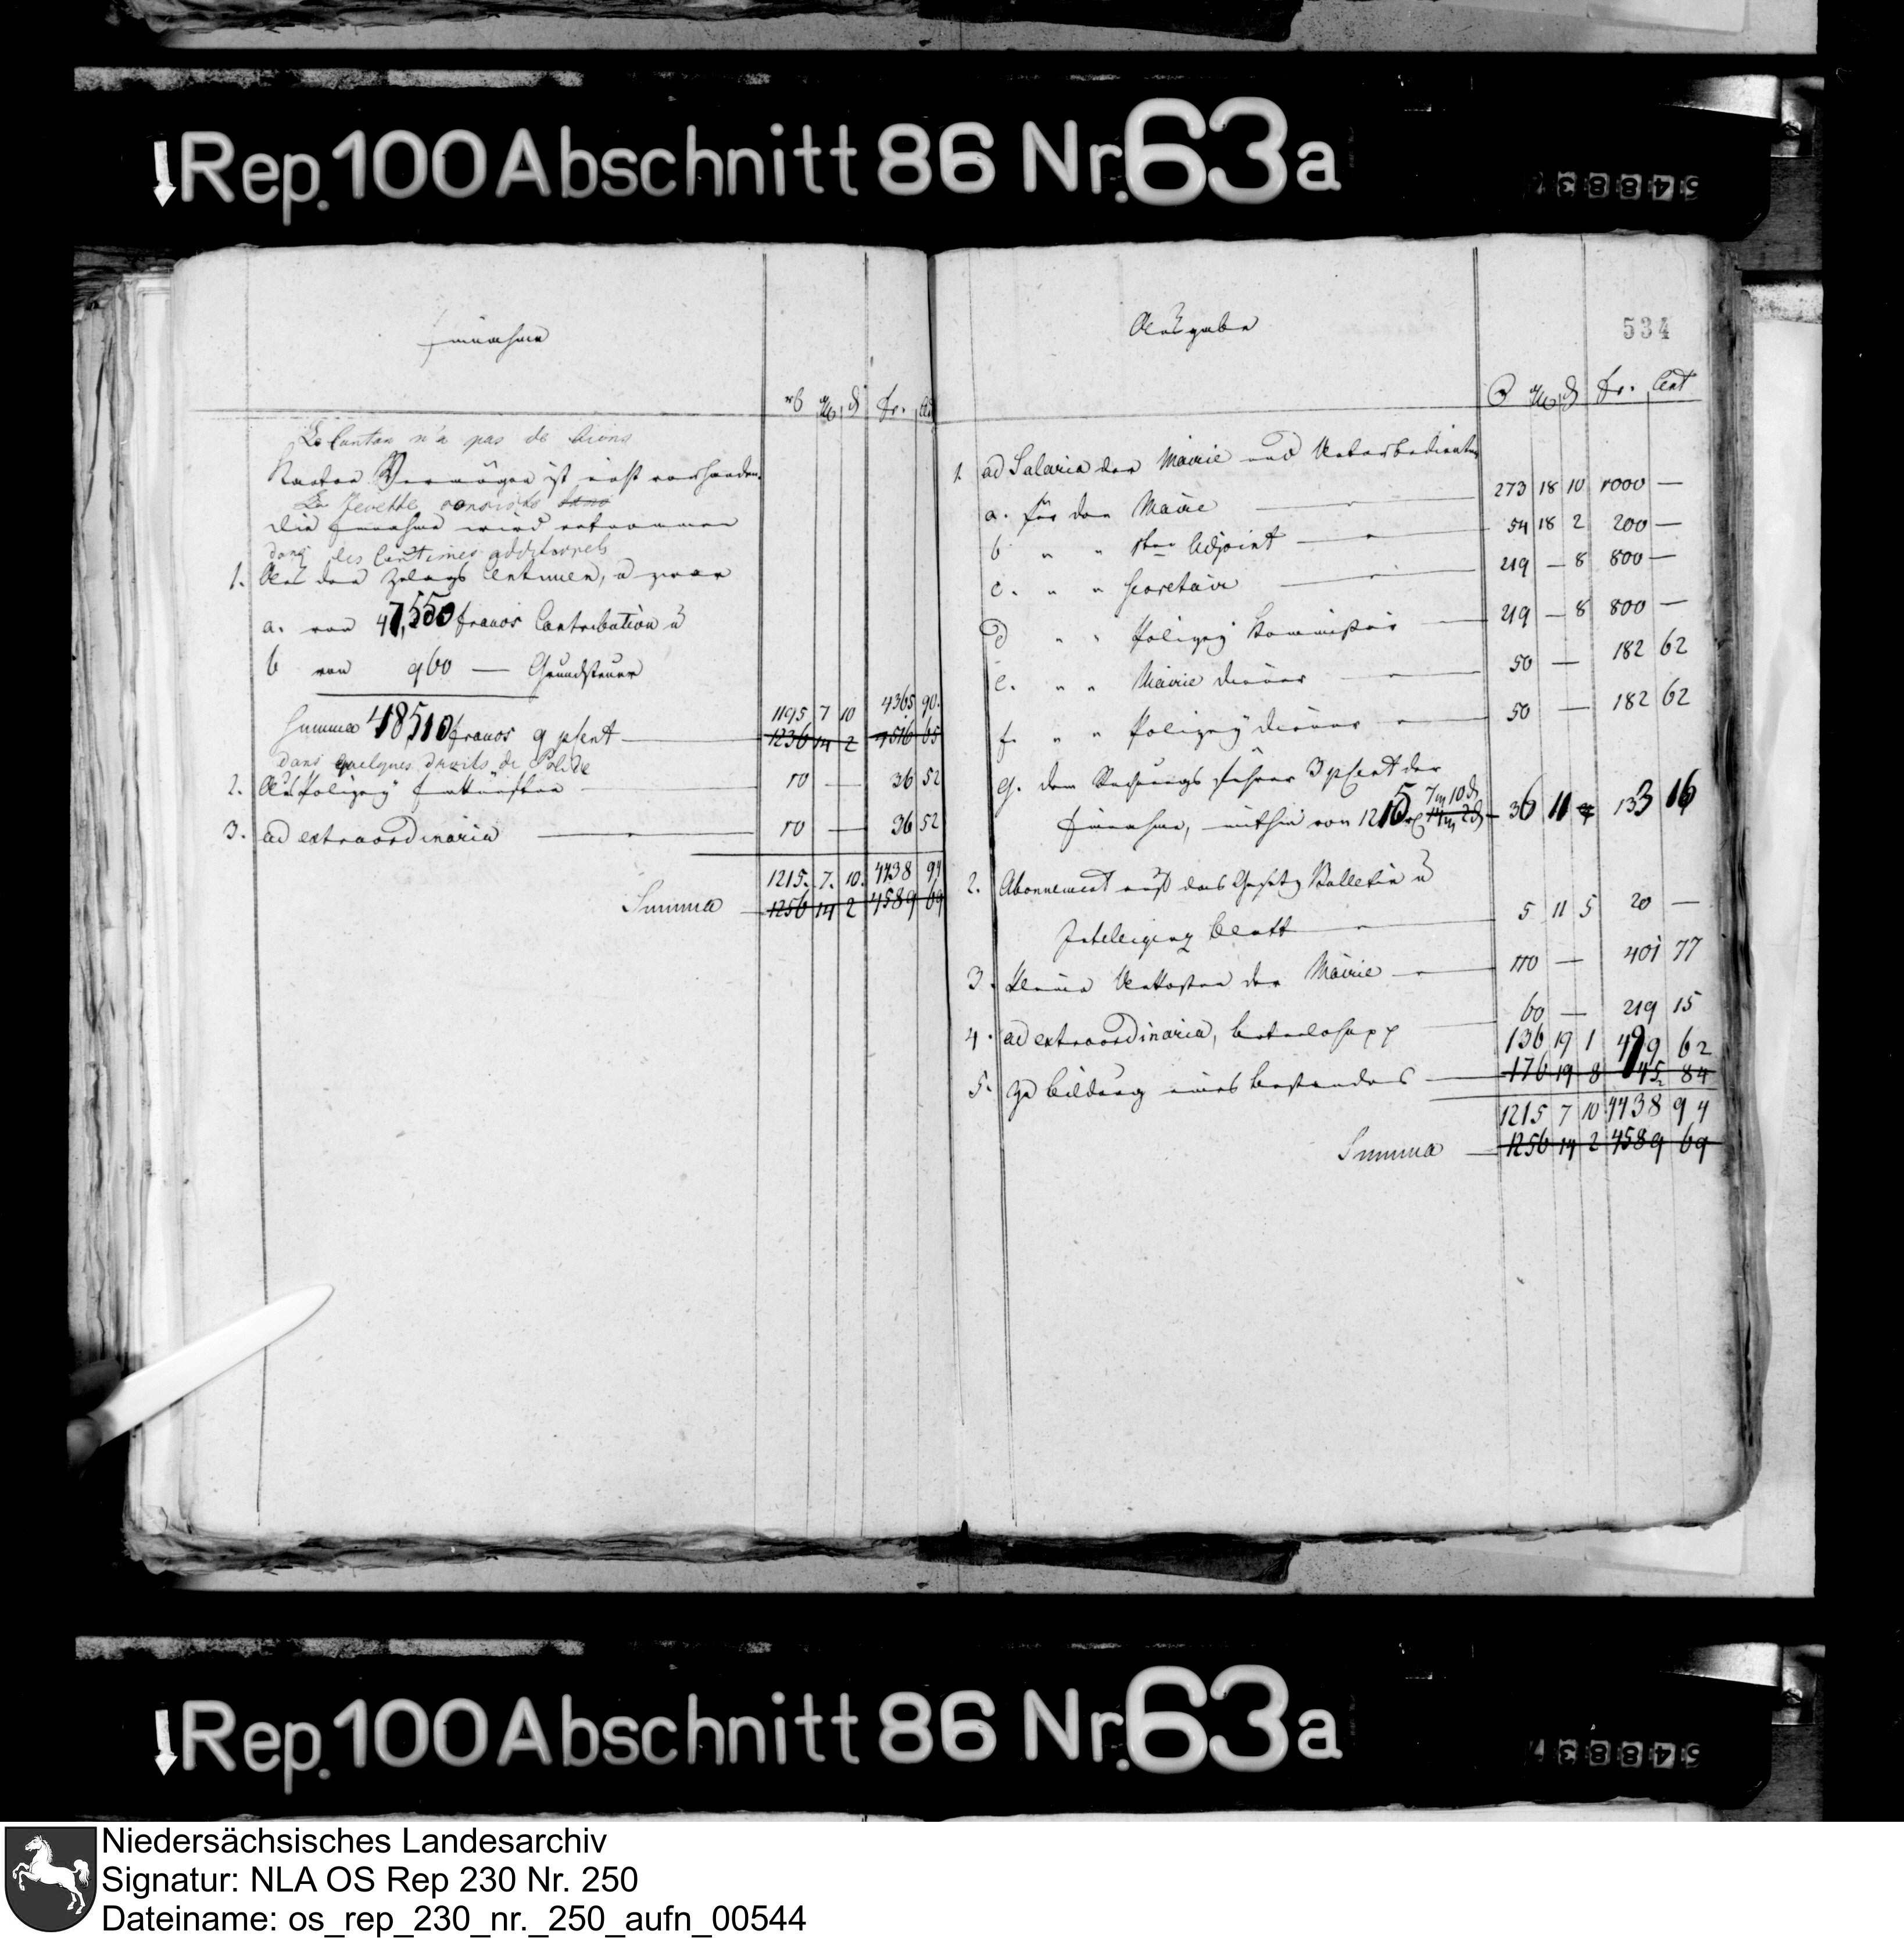 Rep. 100 Abschnitt 86 Nr. 63a
Einnahme
rt mg d fr. Ct
Le Canton n'a pas de biens
Kanton Vermögen ist nicht vorhanden.
La recette consiste dans
Die Einnahme wird entnommen
dans les Centimes additionnels
1. Aus den Zulags Centimen, u zwar
a. von 47,550 francs Contribution u
b von 960 — Grundsteuer
Summa 48,510 francs 9 pCent — 1195 7 10 4365 90.
1236 14 2 4516 65
dans quelques droits de Police
2. Aus Polizey Einkünften — 10 — 36 52
3. ad extraordinaria — 10 — 36 52
1215. 7. 10. 4438 94
Summa — 1256 14 2 4589 69
Ausgabe
534
mg d fr. Cent
1. ad Salaria der Mairie und Unterbedienten
a. für den Maire — 273 18 10 1000 —
b " " 1ten Adjoint — 54 18 2 200 —
c. " " Secretair — 219 — 8 800 —
d " " Polizey Kommissair — 219 — 8 800 —
e. " " Mairie Diener — 50 — 182 62
f. " " Polizey Diener — 50 — 182 62
g. dem Rechnungsführer 3 pCent der
Einnahme, mithin von 1215 7 10 — 36 11 133 16
2. Abonnement auf das Gesetz Bulletin u
Intelligenz Blatt — 5 11 5 20 —
3. Kleine Unkosten der Mairie — 110 — 401 77
4. ad extraordinaria, — 60 — 219 15
136 19 1 499 62
5. Zu Bildung eines Bestandes — 176 19 8 84
1215 7 10 4438 94
Summa — 1256 14 2 4589 69
Rep. 100 Abschnitt 86 Nr. 63a
Niedersächsisches Landesarchiv
Signatur: NLA OS Rep 230 Nr. 250
Dateiname: os_rep_230_nr._250_aufn_00544